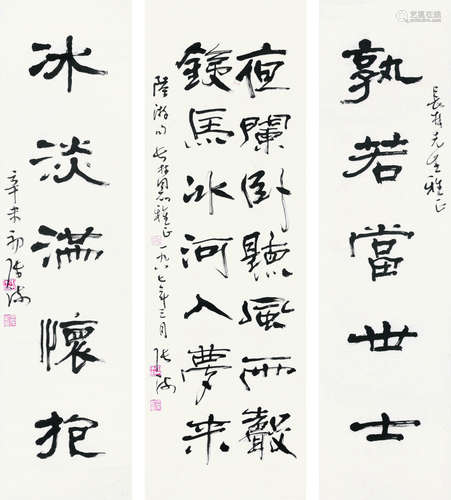 長 先生雅正
孰若當世士
夜闌卧聽風雨聲
鐵馬冰河入夢來
陸游句 長 同志雅正 一九八七年三月 張海
冰淡滿懷抱
辛未初 張海
艺狐在线